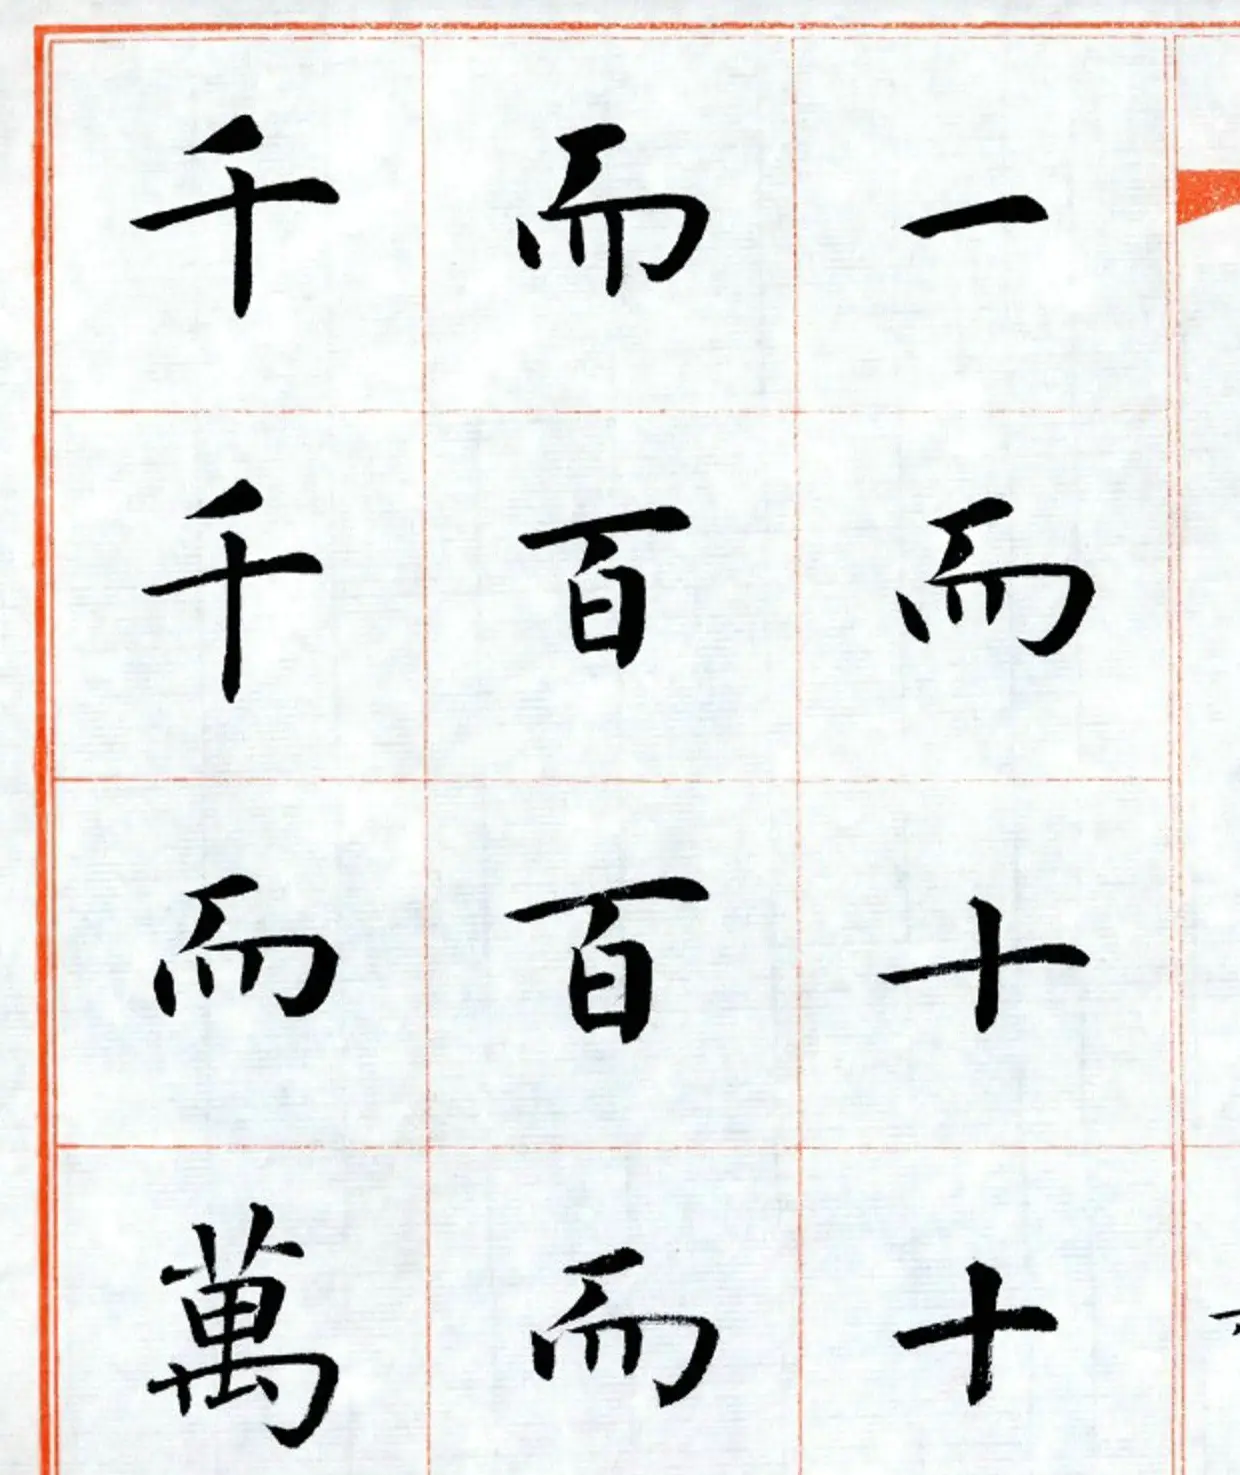 一而十十
而百百而
千千而萬